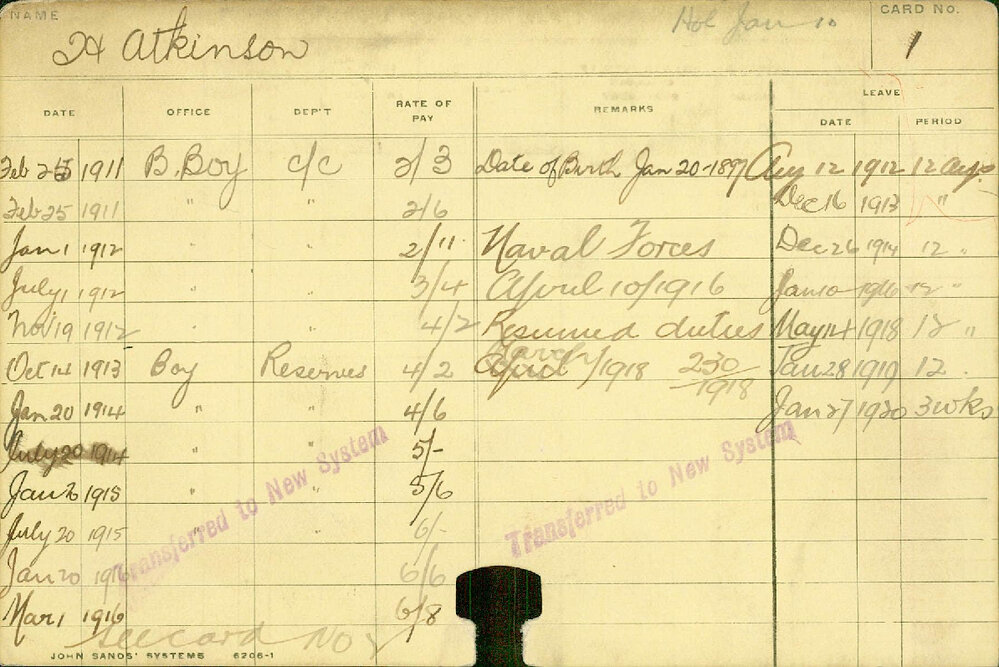 NAME
Hol Jan 10
CARD No.
H Atkinson
1
LEAVE
DATE OFFICE DEP'T RATE OF PAY REMARKS DATE PERIOD
Feb 25 1911 B. Boy c/c 2/3 Date of Birth Jan 20-1897 Aug 12 1912 12 days
Feb 25 1911 " " 2/6 Dec 16 1913 "
Jan 1 1912 " " 2/11 Naval Forces Dec 26 1914 12 "
July 1 1912 " " 3/4 April 10/1916 Jan 10 1916 12 "
Nov 19 1912 " " 4/2 Resumed duties May 14 1918 12 "
Oct 14 1913 Boy Reserves 4/2 March /1918 230/1918 Jan 28 1919 12 "
Jan 20 1914 " " 4/6 Jan 27 1920 3 wks
July 20 1914 " " 5/-
Jan 20 1915 " " 5/6
July 20 1915 " 6/-
Jan 20 1916 6/6
Mar 1 1916 6/8
Transferred to New System
Transferred to New System
see card No 2
JOHN SANDS' SYSTEMS 6206-1